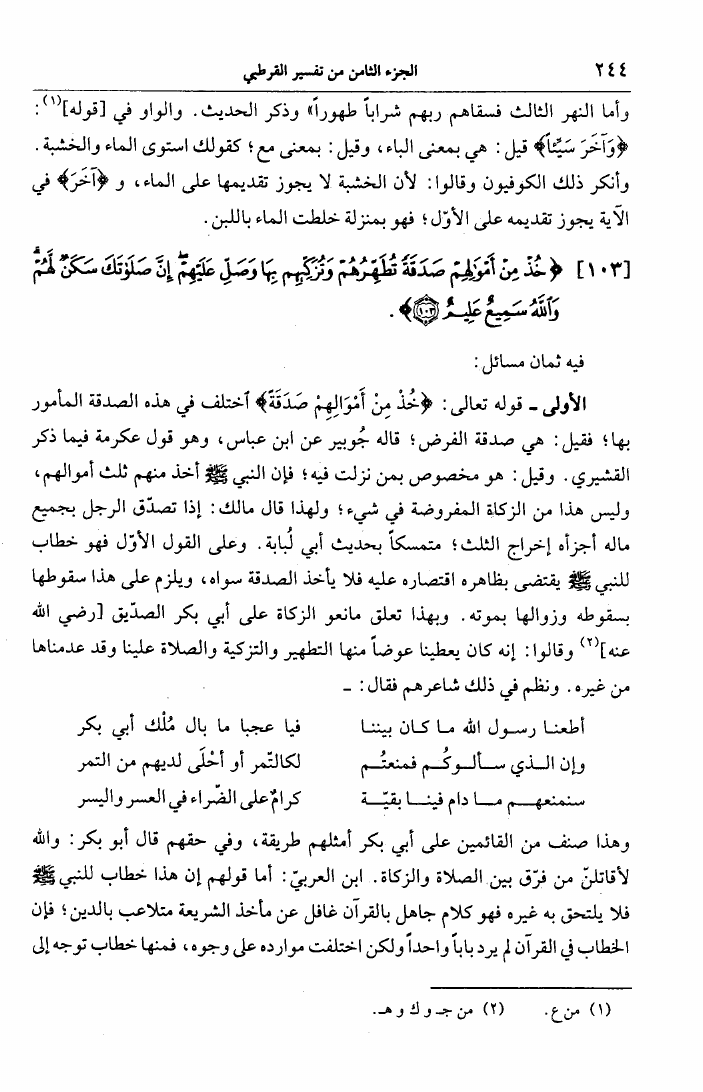 ٢٤٤ الجزء الثامن من تفسير القرطبي
وأما النهر الثالث فسقاهم ربهم شراباً طهوراً» وذكر الحديث. والواو في [قوله](١):
﴿وَآخَرَ سَيِّئاً﴾ قيل: هي بمعنى الباء، وقيل: بمعنى مع؛ كقولك استوى الماء والخشبة.
وأنكر ذلك الكوفيون وقالوا: لأن الخشبة لا يجوز تقديمها على الماء، و ﴿آخَرَ﴾ في
الآية يجوز تقديمه على الأوّل؛ فهو بمنزلة خلطت الماء باللبن.
[١٠٣] ﴿خُذْ مِنْ أَمْوَٰلِهِمْ صَدَقَةً تُطَهِّرُهُمْ وَتُزَكِّيهِم بِهَا وَصَلِّ عَلَيْهِمْ إِنَّ صَلَوٰتَكَ سَكَنٌ لَّهُمْ
وَٱللَّهُ سَمِيعٌ عَلِيمٌ ١٠٣﴾.
فيه ثمان مسائل:
الأولى ـ قوله تعالى: ﴿خُذْ مِنْ أَمْوَالِهِمْ صَدَقَةً﴾ ٱختلف في هذه الصدقة المأمور
بها؛ فقيل: هي صدقة الفرض؛ قاله جُويبر عن ابن عباس، وهو قول عكرمة فيما ذكر
القشيري. وقيل: هو مخصوص بمن نزلت فيه؛ فإن النبي ﷺ أخذ منهم ثلث أموالهم،
وليس هذا من الزكاة المفروضة في شيء؛ ولهذا قال مالك: إذا تصدّق الرجل بجميع
ماله أجزأه إخراج الثلث؛ متمسكاً بحديث أبي لُبابة. وعلى القول الأوّل فهو خطاب
للنبي ﷺ يقتضى بظاهره اقتصاره عليه فلا يأخذ الصدقة سواه، ويلزم على هذا سقوطها
بسقوطه وزوالها بموته. وبهذا تعلق مانعو الزكاة على أبي بكر الصدّيق [رضي الله
عنه](٢) وقالوا: إنه كان يعطينا عوضاً منها التطهير والتزكية والصلاة علينا وقد عدمناها
من غيره. ونظم في ذلك شاعرهم فقال: ـ
أطعنا رسول الله ما كان بيننا فيا عجبا ما بال مُلْك أبي بكر
وإن الذي سألوكُم فمنعتُم لكالتّمر أو أحْلَى لديهم من التمر
سنمنعهم ما دام فينا بقيّة كرامٌ على الضّراء في العسر واليسر
وهذا صنف من القائمين على أبي بكر أمثلهم طريقة، وفي حقهم قال أبو بكر: والله
لأقاتلنّ من فرّق بين الصلاة والزكاة. ابن العربيّ: أما قولهم إن هذا خطاب للنبي ﷺ
فلا يلتحق به غيره فهو كلام جاهل بالقرآن غافل عن مأخذ الشريعة متلاعب بالدين؛ فإن
الخطاب في القرآن لم يرد باباً واحداً ولكن اختلفت موارده على وجوه، فمنها خطاب توجه إلى
(١) من ع. (٢) من جـ و ك و هـ.